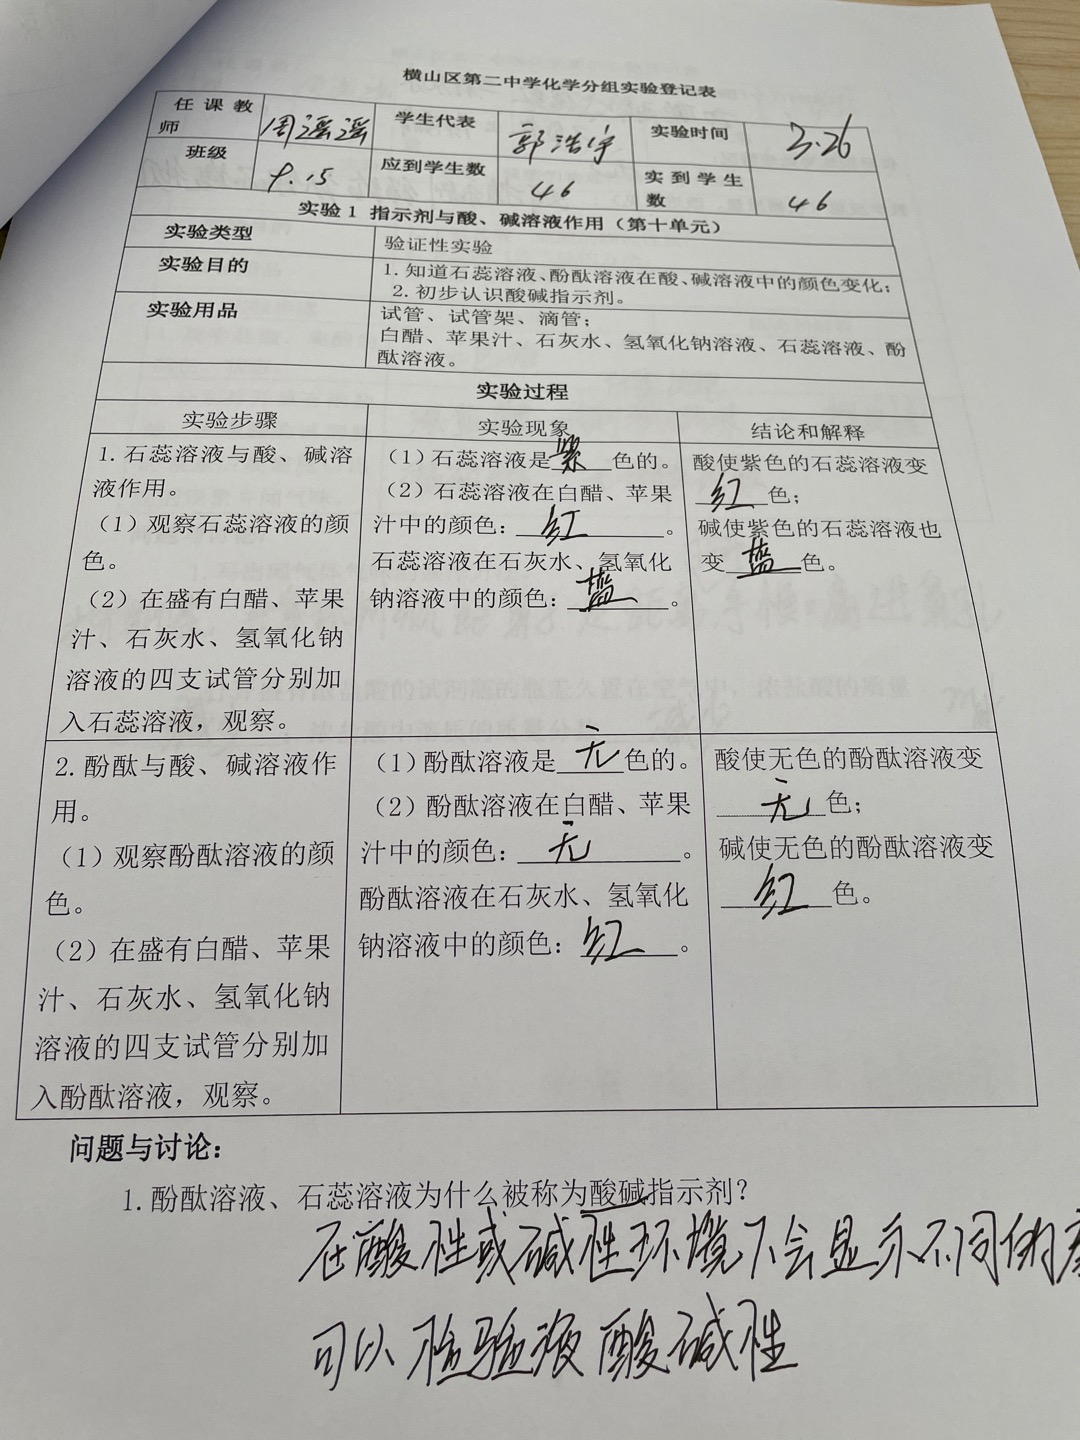 横山区第二中学化学分组实验登记表
任课教师 周遥遥 学生代表 郭浩宇 实验时间 3.26
班级 9.15 应到学生数 46 实到学生数 46
实验1 指示剂与酸、碱溶液作用（第十单元）
实验类型 验证性实验
实验目的 1.知道石蕊溶液、酚酞溶液在酸、碱溶液中的颜色变化；
2.初步认识酸碱指示剂。
实验用品 试管、试管架、滴管；
白醋、苹果汁、石灰水、氢氧化钠溶液、石蕊溶液、酚
酞溶液。
实验过程
实验步骤 实验现象 结论和解释
1.石蕊溶液与酸、碱溶
液作用。
（1）观察石蕊溶液的颜
色。
（2）在盛有白醋、苹果
汁、石灰水、氢氧化钠
溶液的四支试管分别加
入石蕊溶液，观察。
（1）石蕊溶液是紫色的。
（2）石蕊溶液在白醋、苹果
汁中的颜色：红。
石蕊溶液在石灰水、氢氧化
钠溶液中的颜色：蓝。
酸使紫色的石蕊溶液变
红色；
碱使紫色的石蕊溶液也
变蓝色。
2.酚酞与酸、碱溶液作
用。
（1）观察酚酞溶液的颜
色。
（2）在盛有白醋、苹果
汁、石灰水、氢氧化钠
溶液的四支试管分别加
入酚酞溶液，观察。
（1）酚酞溶液是无色的。
（2）酚酞溶液在白醋、苹果
汁中的颜色：无。
酚酞溶液在石灰水、氢氧化
钠溶液中的颜色：红。
酸使无色的酚酞溶液变
无色；
碱使无色的酚酞溶液变
红色。
问题与讨论：
1.酚酞溶液、石蕊溶液为什么被称为酸碱指示剂？
在酸性或碱性环境下会显示不同的
可以检验液酸碱性